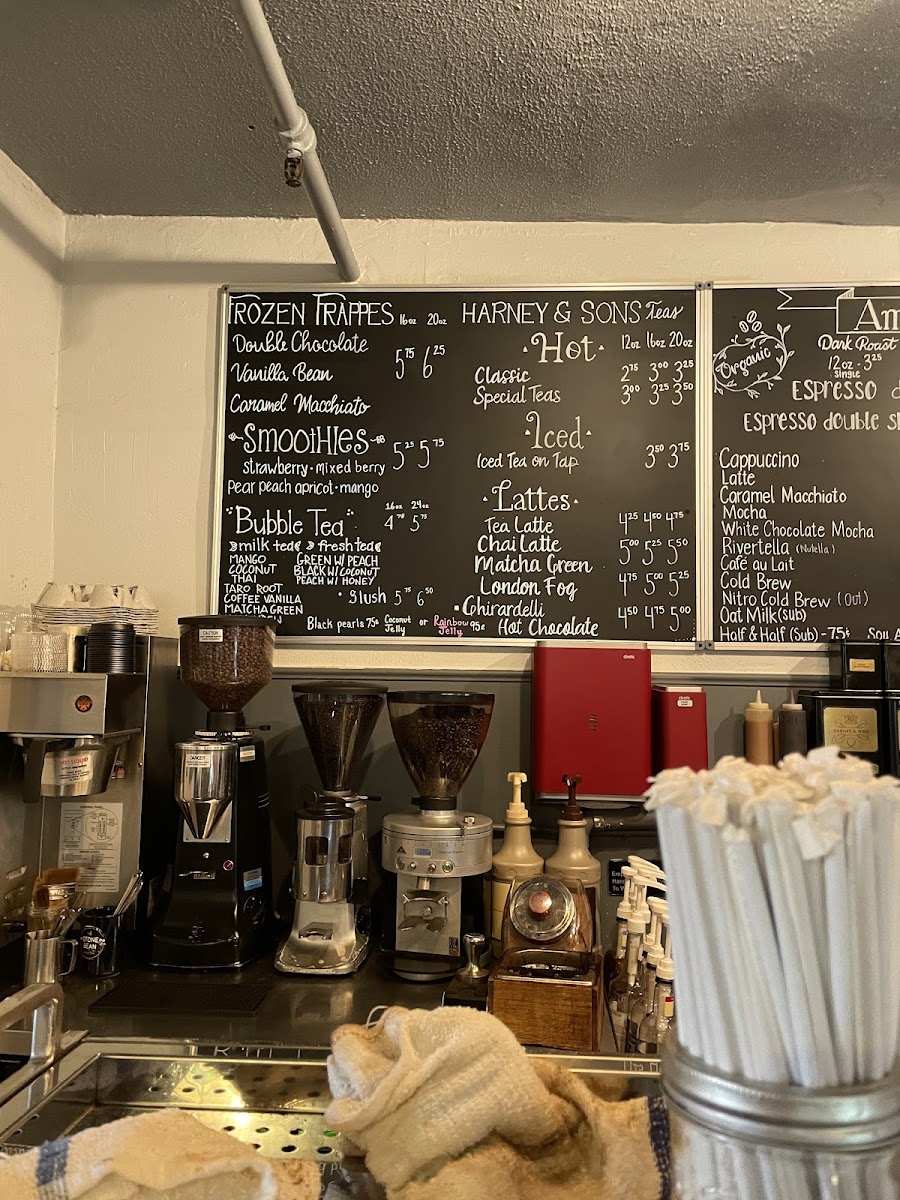 FROZEN FRAPPES 16oz 20oz
Double Chocolate
5 75 6 25
Vanilla Bean
Caramel Macchiato
Smoothies
5 25 5 75
strawberry · mixed berry
Pear peach apricot · mango
16oz 24oz
"Bubble Tea" 4 75 5 75
milk tea fresh tea
MANGO GREEN W/ PEACH
COCONUT BLACK W/ COCONUT
THAI PEACH W/ HONEY
TARO ROOT
COFFEE VANILLA
MATCHA GREEN
· Slush 5 75 6 50
Black pearls 75¢ Coconut Jelly or Rainbow Jelly 95¢
HARNEY & SONS Teas
· Hot · 12oz 16oz 20oz
Classic 2 75 3 00 3 25
Special Teas 3 00 3 25 3 50
· Iced ·
Iced Tea on Tap 3 50 3 75
· Lattes ·
Tea Latte 4 25 4 50 4 75
Chai Latte 5 00 5 25 5 50
Matcha Green
London Fog 4 75 5 00 5 25
· Ghirardelli
Hot Chocolate 4 50 4 75 5 00
Am
Organic
Dark Roast
12oz · 3 25
single
Espresso
Espresso double
Cappuccino
Latte
Caramel Macchiato
Mocha
White Chocolate Mocha
Rivertella (Nutella)
Café au Lait
Cold Brew
Nitro Cold Brew (Out)
Oat Milk (sub)
Half & Half (Sub) - 75¢
CAUTION
DANGER
HARNEY & SONS